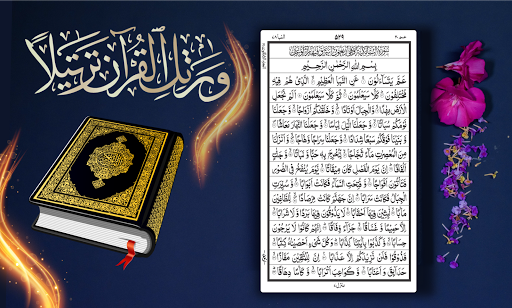 وَرَتِّلِ الْقُرْآنَ تَرْتِيلًا
۵۲۹
بِسْمِ اللهِ الرَّحْمٰنِ الرَّحِيْمِ
عَمَّ يَتَسَآءَلُوْنَ ۝ عَنِ النَّبَاِ الْعَظِيْمِ ۝ الَّذِىْ هُمْ فِيْهِ
مُخْتَلِفُوْنَ ۝ كَلَّا سَيَعْلَمُوْنَ ۝ ثُمَّ كَلَّا سَيَعْلَمُوْنَ ۝ اَلَمْ نَجْعَلِ
الْاَرْضَ مِهٰدًا ۝ وَّالْجِبَالَ اَوْتَادًا ۝ وَّخَلَقْنٰكُمْ اَزْوَاجًا ۝ وَّجَعَلْنَا
نَوْمَكُمْ سُبَاتًا ۝ وَّجَعَلْنَا الَّيْلَ لِبَاسًا ۝ وَّجَعَلْنَا النَّهَارَ مَعَاشًا ۝
وَّبَنَيْنَا فَوْقَكُمْ سَبْعًا شِدَادًا ۝ وَّجَعَلْنَا سِرَاجًا وَّهَّاجًا ۝ وَّاَنْزَلْنَا
مِنَ الْمُعْصِرٰتِ مَآءً ثَجَّاجًا ۝ لِّنُخْرِجَ بِهٖ حَبًّا وَّنَبَاتًا ۝ وَّجَنّٰتٍ
اَلْفَافًا ۝ اِنَّ يَوْمَ الْفَصْلِ كَانَ مِيْقَاتًا ۝ يَّوْمَ يُنْفَخُ فِى الصُّوْرِ
فَتَاْتُوْنَ اَفْوَاجًا ۝ وَّفُتِحَتِ السَّمَآءُ فَكَانَتْ اَبْوَابًا ۝ وَّسُيِّرَتِ
الْجِبَالُ فَكَانَتْ سَرَابًا ۝ اِنَّ جَهَنَّمَ كَانَتْ مِرْصَادًا ۝ لِّلطَّاغِيْنَ
مَاٰبًا ۝ لّٰبِثِيْنَ فِيْهَآ اَحْقَابًا ۝ لَا يَذُوْقُوْنَ فِيْهَا بَرْدًا وَّلَا شَرَابًا ۝
اِلَّا حَمِيْمًا وَّغَسَّاقًا ۝ جَزَآءً وِّفَاقًا ۝ اِنَّهُمْ كَانُوْا لَا يَرْجُوْنَ
حِسَابًا ۝ وَّكَذَّبُوْا بِاٰيٰتِنَا كِذَّابًا ۝ وَكُلَّ شَىْءٍ اَحْصَيْنٰهُ كِتٰبًا ۝
فَذُوْقُوْا فَلَنْ نَّزِيْدَكُمْ اِلَّا عَذَابًا ۝ اِنَّ لِلْمُتَّقِيْنَ مَفَازًا ۝
حَدَآئِقَ وَاَعْنَابًا ۝ وَّكَوَاعِبَ اَتْرَابًا ۝ وَّكَاْسًا دِهَاقًا ۝